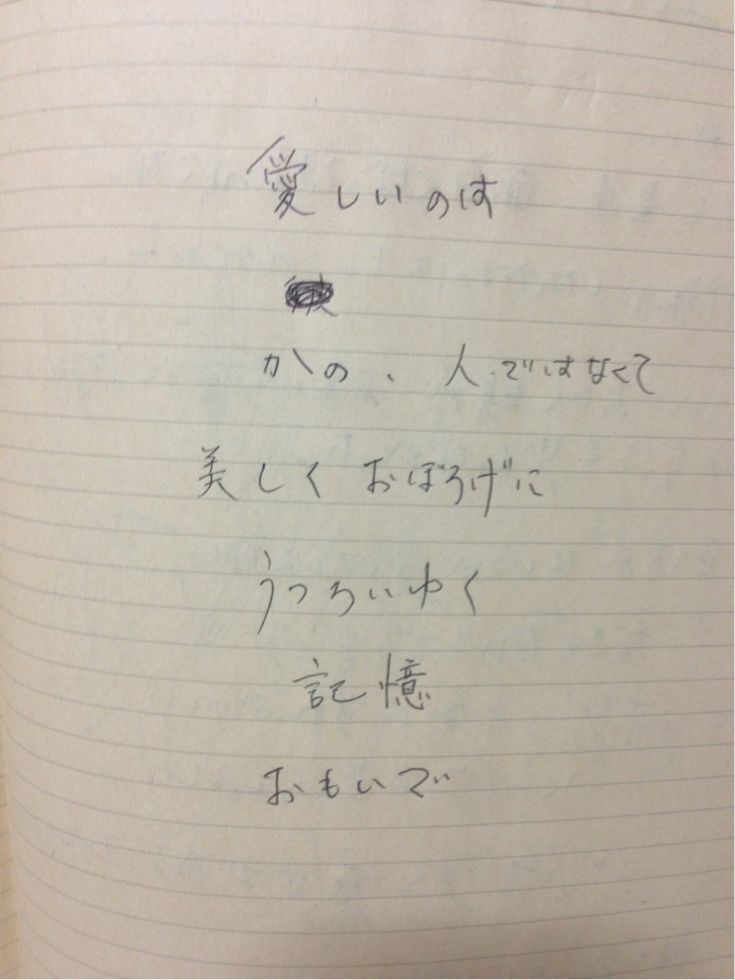 愛しいのは
かの、人ではなくて
美しくおぼろげに
うつろいゆく
記憶
おもいで